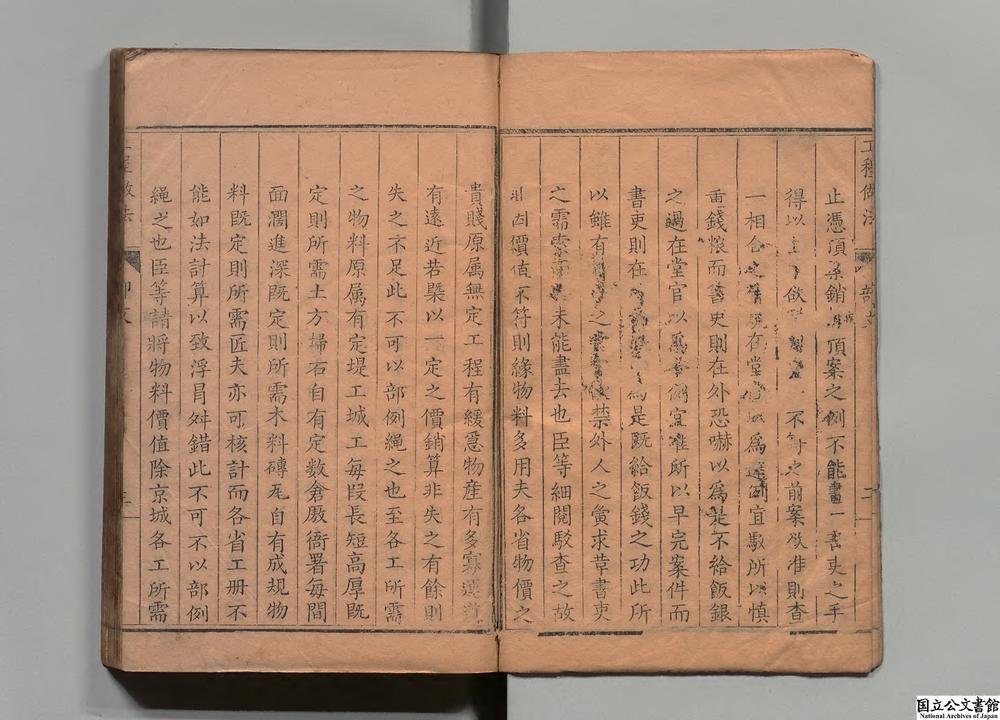 工程做法
止憑頂案銷頂案之例不能畫一書吏之手
得以欲不前案欲准則查
一相合之在堂爲違例宜駁所以慎
重錢糧而書吏則在外恐嚇以爲是不給飯銀
之過在堂官以爲於例宜准所以早完案件而
書吏則在爲是既給飯錢之功此所
以雖有之禁外人之貪求草書吏
之需索未能盡去也臣等細閱駁查之故
因價值不符則緣物料多用夫各省物價之
貴賤原属無定工程有緩急物産有多寡運
有遠近若槩以一定之價銷算非失之有餘則
失之不足此不可以部例繩之也至各工所需
之物料原属有定堤工城工每段長短高厚既
定則所需土方埽石自有定數倉厫衙署每間
面濶進深既定則所需木料磚瓦自有成規物
料既定則所需匠夫亦可核計而各省工册不
能如法計算以致浮冒舛錯此不可不以部例
繩之也臣等請將物料價值除京城各工所需
工程做法
三
国立公文書館
National Archives of Japan